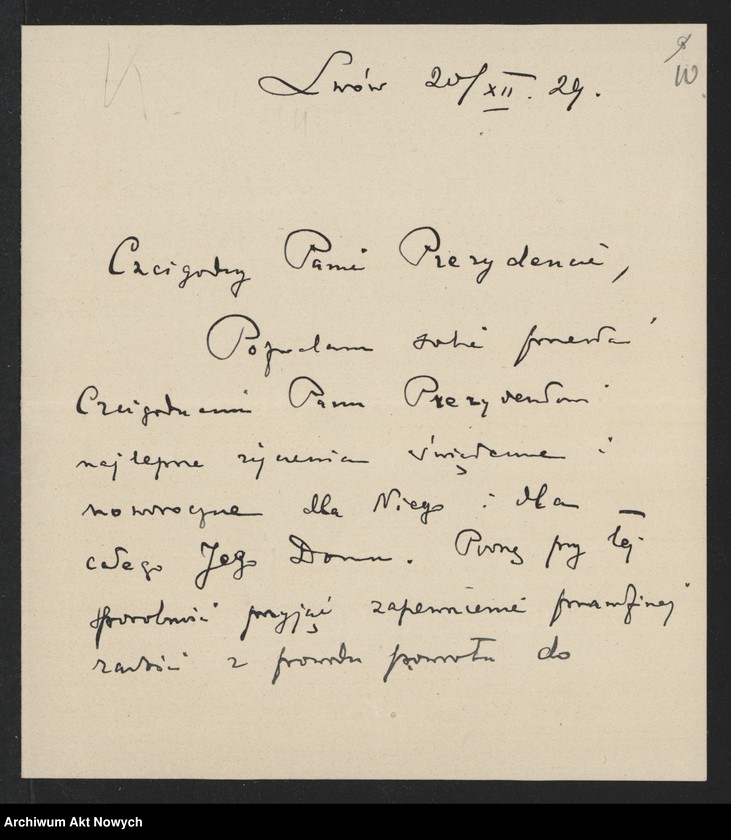 Lwów 20/XII. 29.
10
Czcigodny Panie Prezydencie,
Pozwalam sobie przesłać
Czcigodnemu Panu Prezydentowi
najlepsze życzenia świąteczne i
noworoczne dla Niego i dla
całego Jego Domu. Proszę przy tej
sposobności przyjąć zapewnienie prawdziwej
radości z powodu powrotu do
Archiwum Akt Nowych